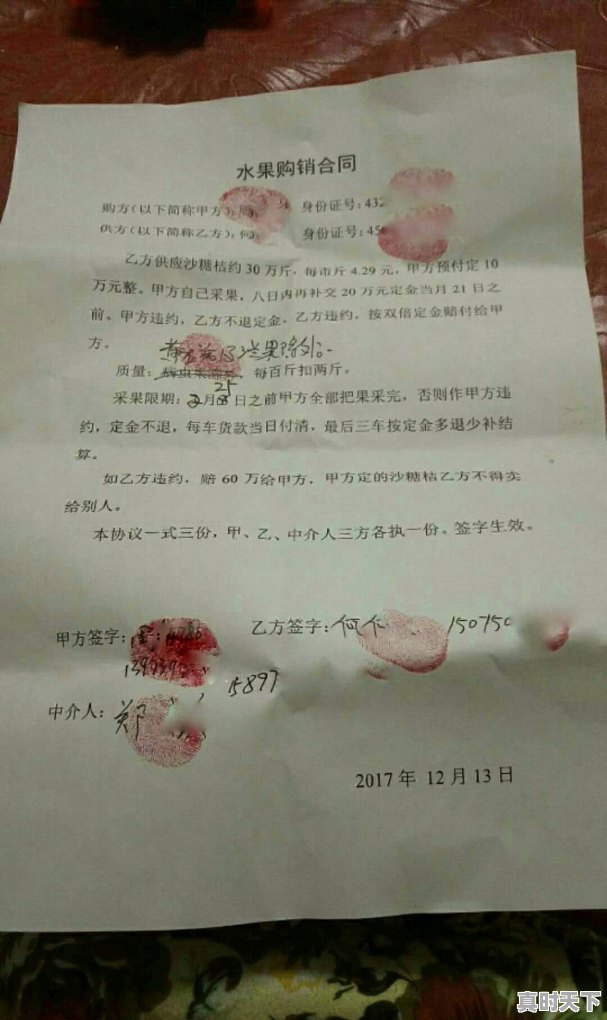 水果购销合同
购方(以下简称甲方): 身份证号:432
供方(以下简称乙方):何 身份证号:45
乙方供应沙糖桔约 30 万斤,每市斤 4.29 元,甲方预付定 10
万元整。甲方自己采果,八日内再补交 20 万元定金当月 21 日之
前。甲方违约,乙方不退定金。乙方违约,按双倍定金赔付给甲
方。
果除外。
质量: 每百斤扣两斤。
25
采果限期: 月 日之前甲方全部把果采完,否则作甲方违
约,定金不退,每车货款当日付清,最后三车按定金多退少补结
算。
如乙方违约,赔 60 万给甲方,甲方定的沙糖桔乙方不得卖
给别人。
本协议一式三份,甲、乙、中介人三方各执一份。签字生效。
甲方签字: 乙方签字:何 15075
15897
中介人:郑
2017 年 12 月 13 日
真时天下